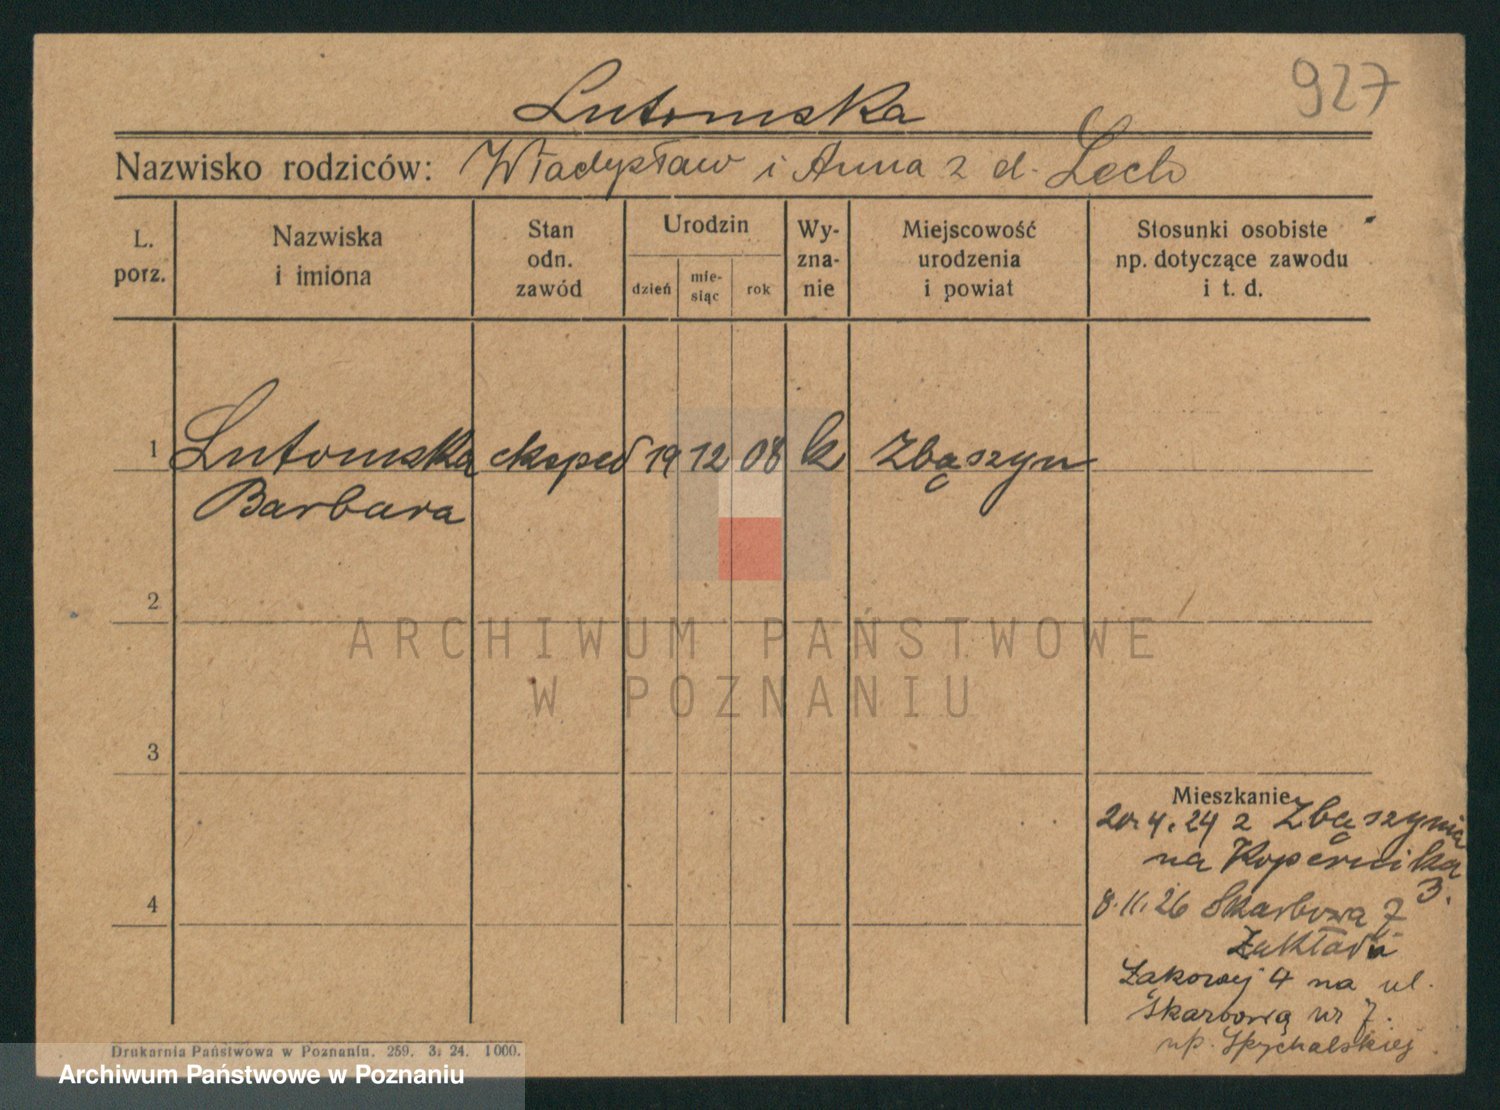 927
Lutomska
Nazwisko rodziców: Władysław i Anna z d. Lech
L. porz.
Nazwiska i imiona
Stan odn. zawód
Urodzin
dzień
mie-
siąc
rok
Wy-
zna-
nie
Miejscowość urodzenia i powiat
Stosunki osobiste np. dotyczące zawodu i t. d.
1 Lutomska eksped 19 12 08 k Zbąszyn
Barbara
2
ARCHIWUM PAŃSTWOWE
W POZNANIU
3
Mieszkanie
20.4.24 z Zbąszynia
na Kopernika
3.
8.11.26 Skarbowa 7
4
Łąkowej 4 na ul.
Skarbową nr 7.
up. Spychalskiej
Drukarnia Państwowa w Poznaniu. 259. 3. 24. 1000.
Archiwum Państwowe w Poznaniu